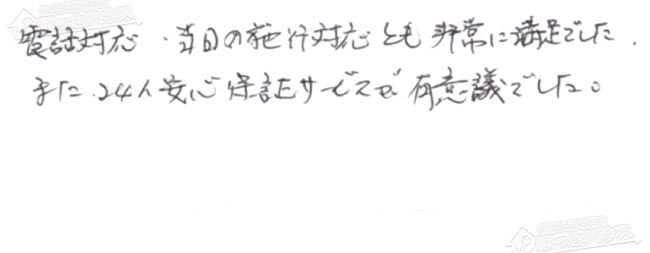 電話対応・当日の施行対応とも非常に満足でした.
また、24人安心保証サービスが有意議でした。